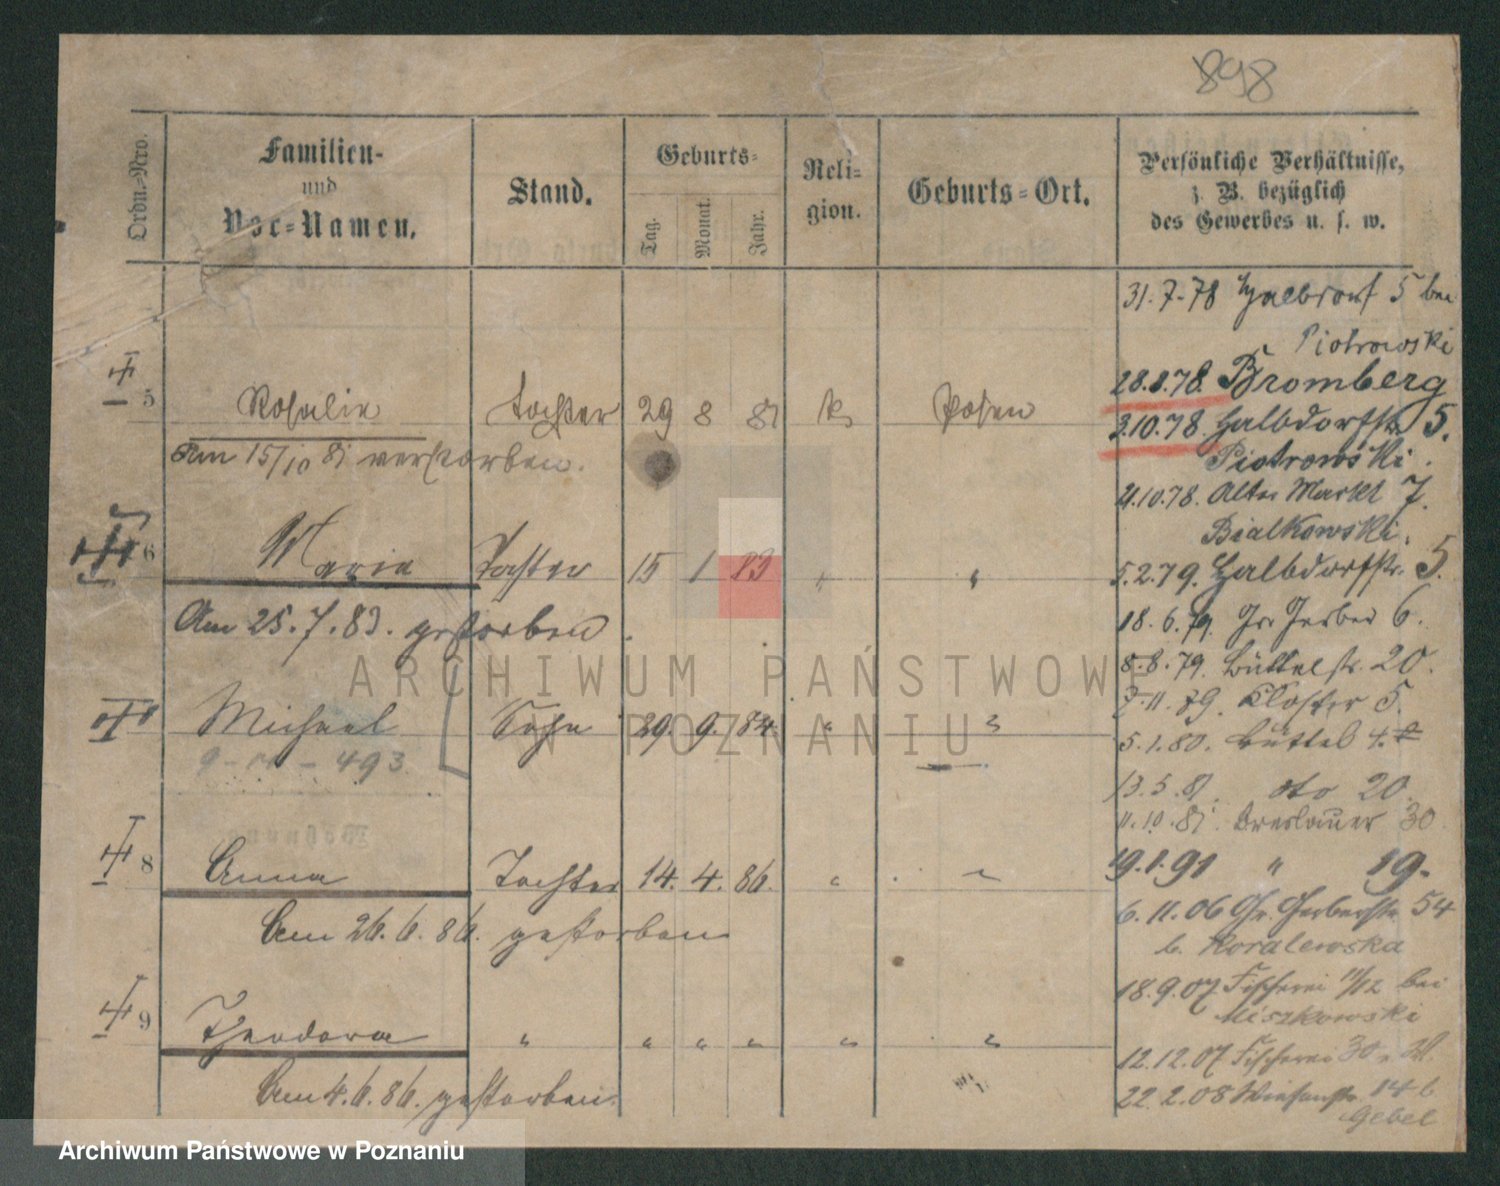 898
Ordn.-Nro.
Familien-
und
Vor-Namen.
Stand.
Geburts-
Tag.
Monat.
Jahr.
Reli-
gion.
Geburts-Ort.
Persönliche Verhältnisse,
z. B. bezüglich
des Gewerbes u. s. w.
31.7.78 Halbdorf 5 bei
Piotrowski
28.8.78. Bromberg
5 Rosalie Tochter 29 8 81 k Posen
2.10.78. Halbdorfstr. 5.
Am 15/10 81 verstorben.
Piotrowski.
21.10.78. Alter Markt 7.
Bialkowski.
6 Marie Tochter 15 1 83 " "
5.2.79. Halbdorfstr. 5.
Am 25.7.83. gestorben.
18.6.79. Gr. Gerber 6.
8.8.79. Büttelstr. 20.
3.11.79. Kloster 5.
Michael Sohn 29. 9. 84. " "
5.1.80. Büttel 4.
493.
13.5.81. dto 20.
11.10.81. Breslauer 30
19.1.91 " 19.
8 Anna Tochter 14. 4. 86. " "
6.11.06 Gr. Gerberstr. 54
Am 26.6.86. gestorben
b. Koralewska
18.9.07 Fischerei 11/12 bei
Miszkowski
9 Theodora " " " " " "
12.12.07 Fischerei 30
Am 4.6.86. gestorben.
22.2.08 Wiesenstr. 14 b
Gebel
ARCHIWUM PAŃSTWOWE
W POZNANIU
Archiwum Państwowe w Poznaniu